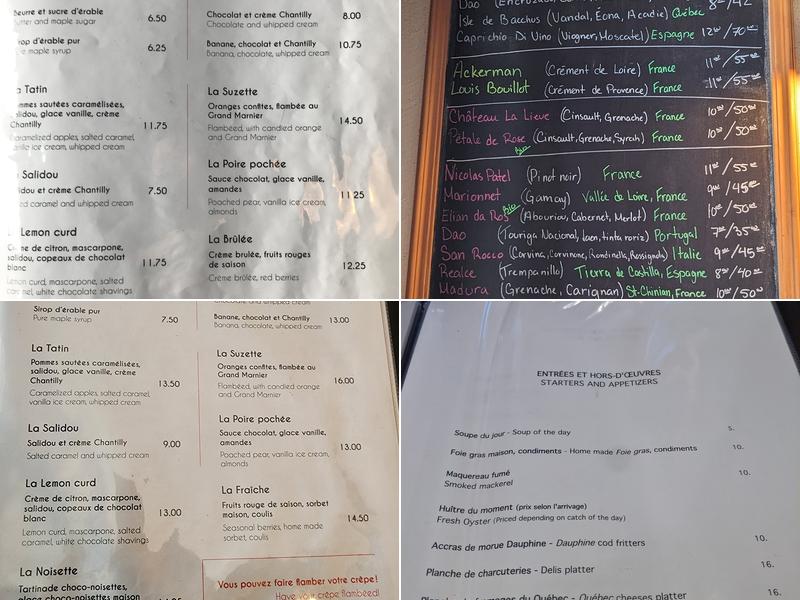 Beurre et sucre d'érable
Butter and maple sugar
6.50
Sirop d'érable pur
maple syrup
6.25
La Tatin
Pommes sautées caramélisées,
salidou, glace vanille, crème
Chantilly
11.75
Caramelized apples, salted caramel,
vanilla ice cream, whipped cream
Salidou
Salidou et crème Chantilly
7.50
Salted caramel and whipped cream
Lemon curd
de citron, mascarpone,
salidou, copeaux de chocolat
blanc
11.75
Lemon curd, mascarpone, salted
caramel, white chocolate shavings
Chocolat et crème Chantilly
8.00
Chocolate and whipped cream
Banane, chocolat et Chantilly
10.75
Banana, chocolate, whipped cream
La Suzette
Oranges confites, flambée au
Grand Marnier
14.50
Flambéed, with candied orange
and Grand Marnier
La Poire pochée
Sauce chocolat, glace vanille,
amandes
11 25
Poached pear, vanilla ice cream,
almonds
La Brûlée
Crème brulée, fruits rouges
de saison
12.25
Crème brûlée, red berries
Dao
Isle de Bacchus (Vandal, Eona, Acadie) Québec
Caprichio Di Vino (Viogner, Moscatel) Espagne 12⁰⁰/70⁰⁰
Ackerman (Crément de Loire) France 11⁰⁰/55⁰⁰
Louis Bouillot (Crément de Provence) France 11⁰⁰/55⁰⁰
Château La Lieue (Cinsault, Grenache) France 10⁰⁰/50⁰⁰
Pétale de Rose (Cinsault, Grenache, Syrah) France 10⁰⁰/50⁰⁰
Bio
Nicolas Patel (Pinot noir) France 11⁰⁰/55⁰⁰
Marionnet (Gamay) Vallée de Loire, France 9⁰⁰/45⁰⁰
Bio
Elian da Ros (Abouriou, Cabernet, Merlot) France 10⁰⁰/50⁰⁰
Dao (Touriga Nacional, Jaen, tinta roriz) Portugal 7⁰⁰/35⁰⁰
San Rocco (Corvina, Corvinone, Rondinella, Rossignola) Italie 9⁰⁰/45⁰⁰
Realce (Trempanillo) Tierra de Castilla, Espagne 8⁰⁰/40⁰⁰
Madura (Grenache, Carignan) St-Chinian, France 10⁰⁰/50⁰⁰
Sirop d'érable pur
Pure maple syrup
7.50
La Tatin
Pommes sautées caramélisées,
salidou, glace vanille, crème
Chantilly
13.50
Caramelized apples, salted caramel,
vanilla ice cream, whipped cream
La Salidou
Salidou et crème Chantilly
9.00
Salted caramel and whipped cream
La Lemon curd
Crème de citron, mascarpone,
salidou, copeaux de chocolat
blanc
13.00
Lemon curd, mascarpone, salted
caramel, white chocolate shavings
La Noisette
Tartinade choco-noisettes,
glace choco-noisettes maison
Chocolate and whipped cream
Banane, chocolat et Chantilly
13.00
Banana, chocolate, whipped cream
La Suzette
Oranges confites, flambée au
Grand Marnier
16.00
Flambéed, with candied orange
and Grand Marnier
La Poire pochée
Sauce chocolat, glace vanille,
amandes
13.00
Poached pear, vanilla ice cream,
almonds
La Fraîche
Fruits rouge de saison, sorbet
maison, coulis
14.50
Seasonal berries, home made
sorbet, coulis
Vous pouvez faire flamber votre crêpe!
Have your crêpe flambéed!
ENTRÉES ET HORS-D'ŒUVRES
STARTERS AND APPETIZERS
Soupe du jour - Soup of the day 5.
Foie gras maison, condiments - Home made Foie gras, condiments 10.
Maquereau fumé 10.
Smoked mackerel
Huître du moment (prix selon l'arrivage)
Fresh Oyster (Priced depending on catch of the day)
Accras de morue Dauphine - Dauphine cod fritters 10.
Planche de charcuteries - Delis platter 16.
Planche de fromages du Québec - Québec cheeses platter 16.